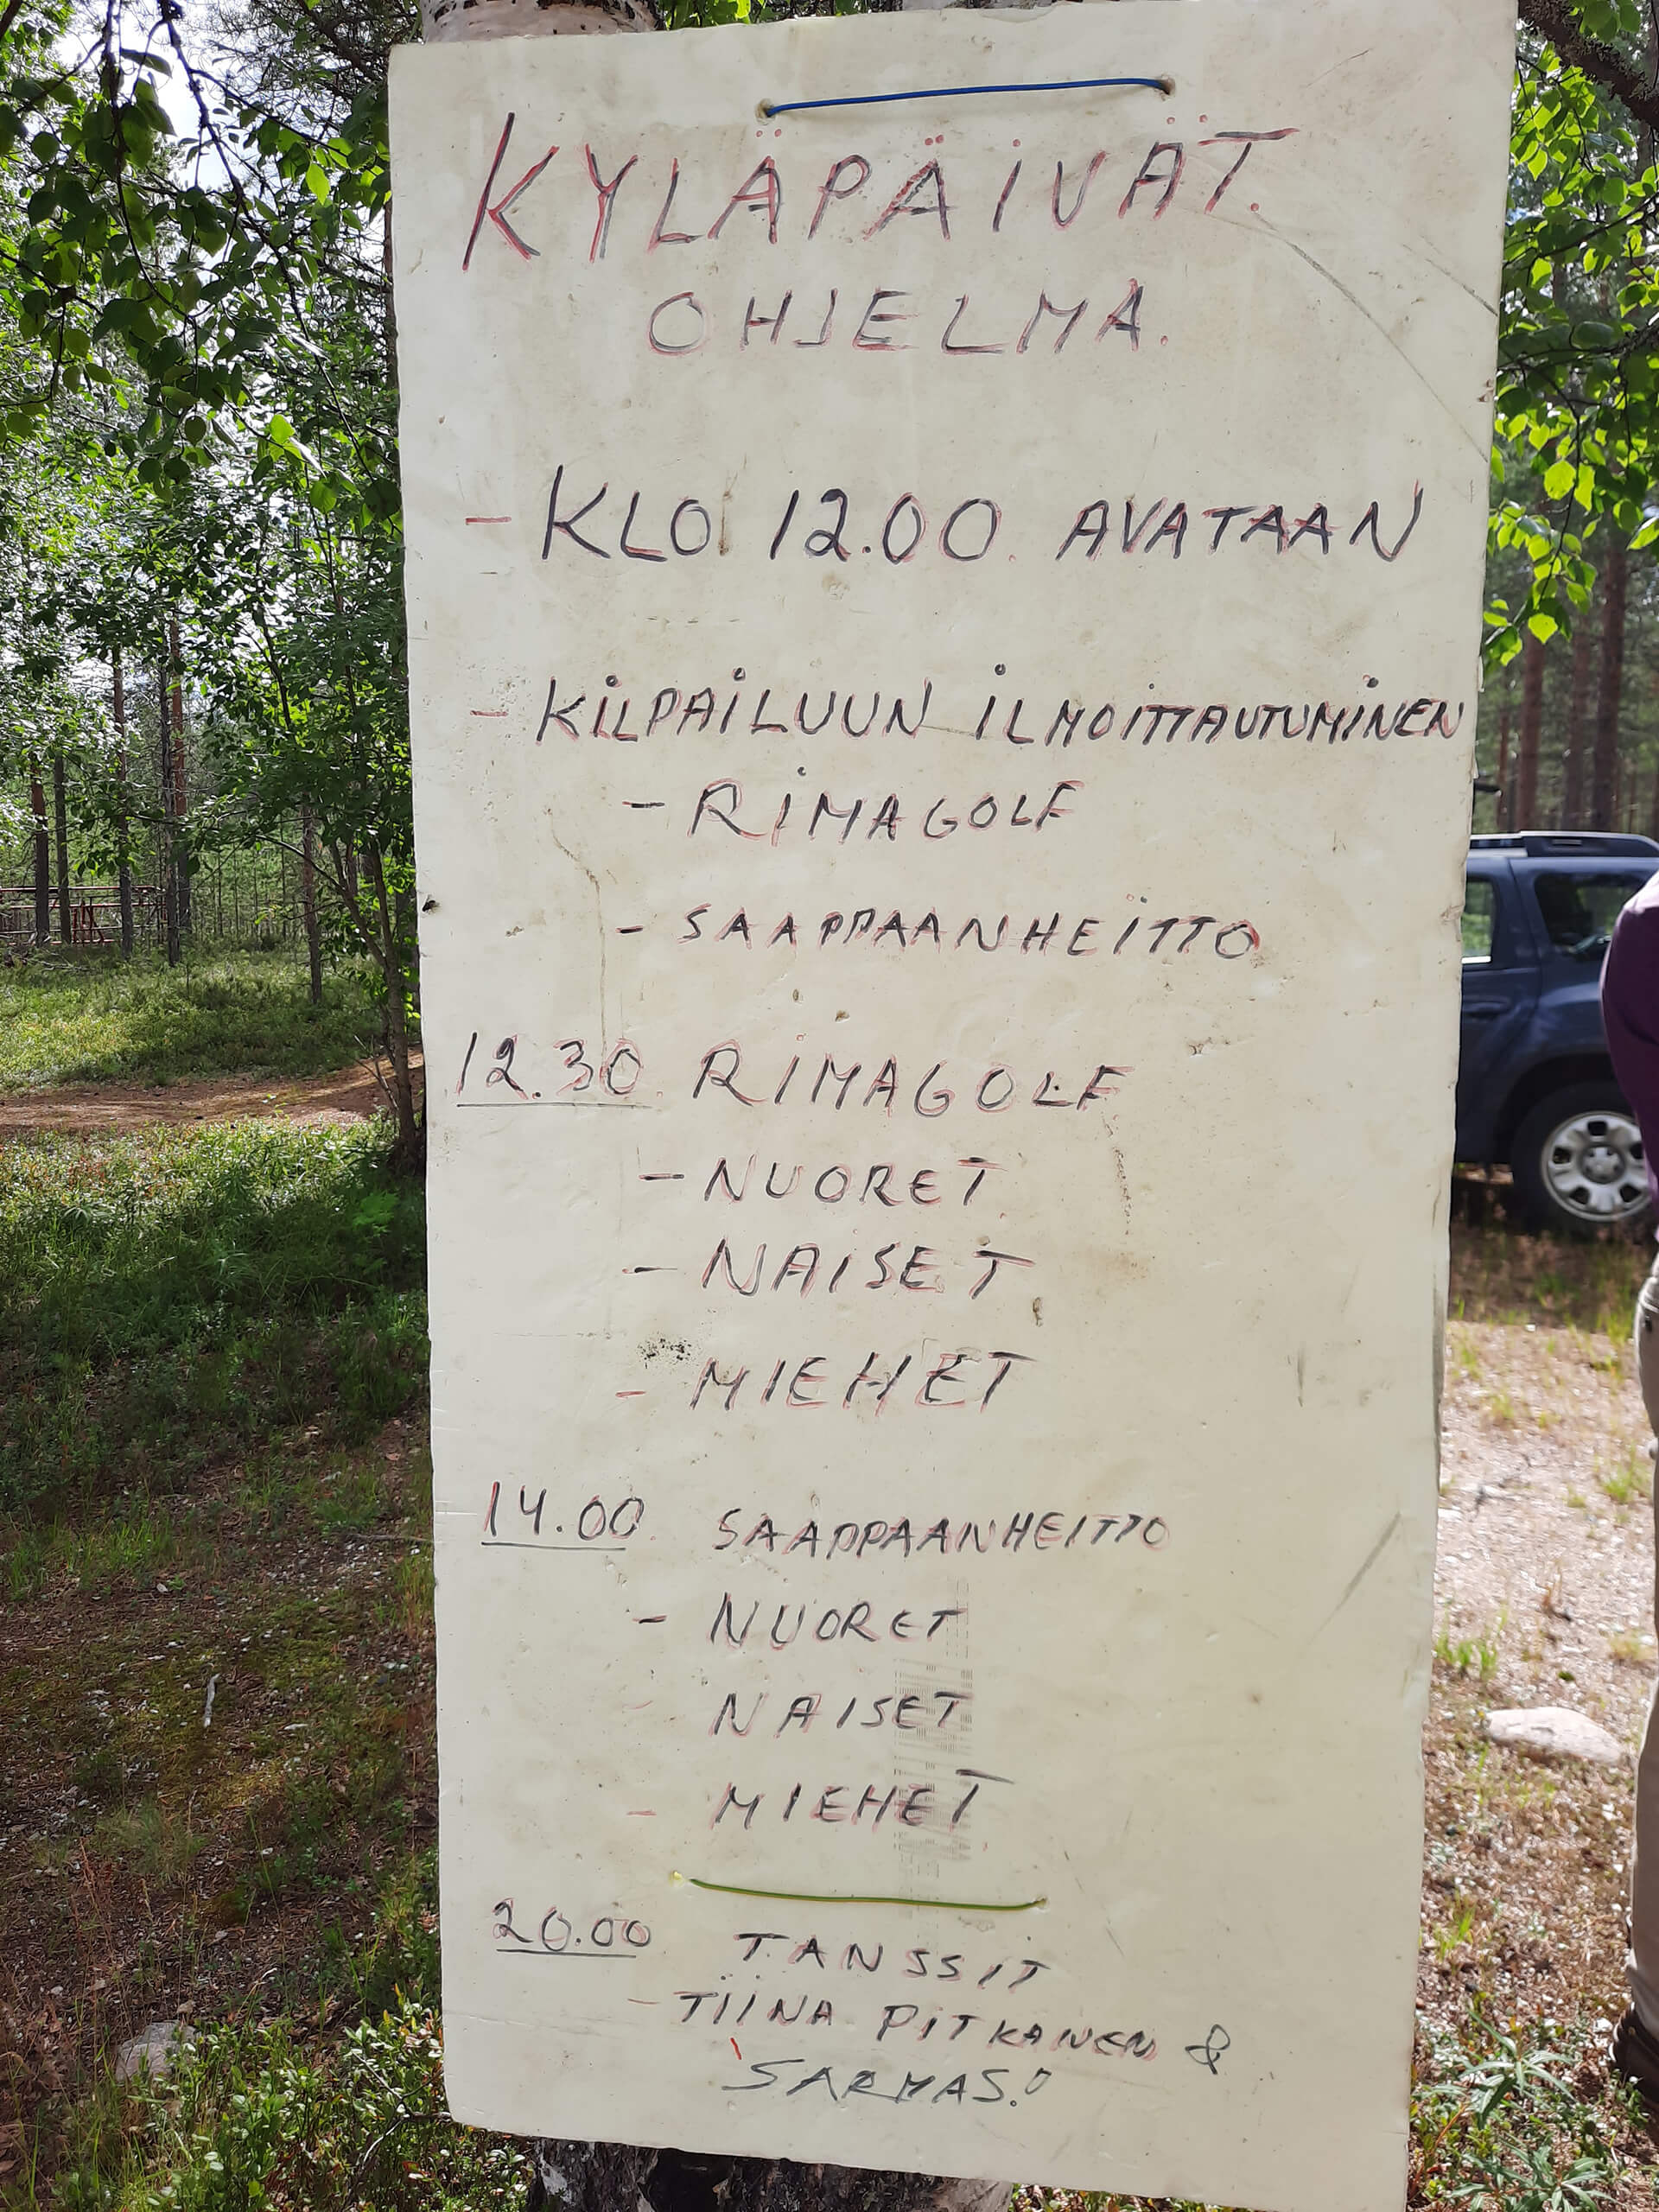 KYLÄPÄIVÄT.
OHJELMA.
- KLO 12.00. AVATAAN
- KILPAILUUN ILMOITTAUTUMINEN
- RIMAGOLF
- SAAPPAANHEITTO
12.30. RIMAGOLF
- NUORET
- NAISET
- MIEHET
14.00. SAAPPAANHEITTO
- NUORET
- NAISET
- MIEHET
20.00 TANSSIT
- TIINA PITKANEN &
SARMAS!